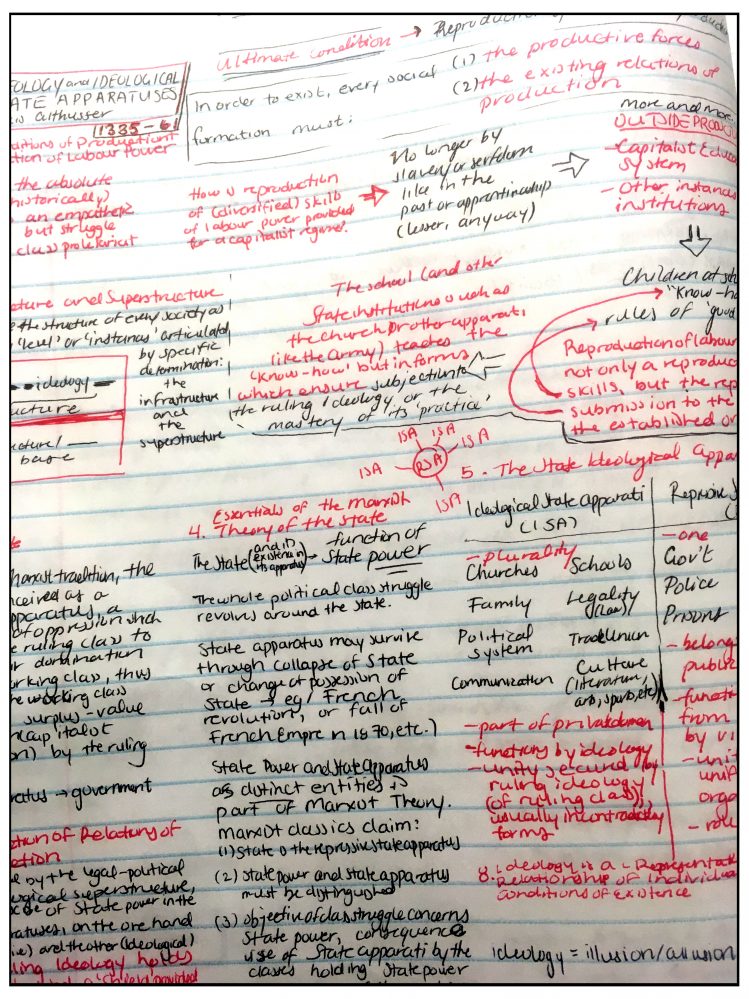 Ultimate condition → Reproduction of
OLOGY and IDEOLOGICAL
ATE APPARATUSES
is althusser
[1335-61
In order to exist, every social
formation must:
(1) the productive forces
(2) the existing relations of
production
ditions of Production
tion of Labour Power
the absolute
historically)
but struggle
class) proletariat
How is reproduction
of (diversified) skills
of labour power provided
for a capitalist regime?
No longer by
slavery or serfdom
like in the
past or apprenticeship
(lesser, anyway)
more and more
OUTSIDE PRODUC
- Capitalist Educa
system
- Other instances
institutions
Children at sch
"Know-ho
rules of good
Reproduction of labour
not only a reproduc
skills, but the rep
submission to the
the established or
The school (and other
State institutions such as
the Church) or other apparati
like the Army) teaches the
'know-how' but in forms
which ensure subjection to
the ruling ideology or the
mastery of its 'practice'
cture and Superstructure
the structure of every society as
'level' or 'instances' articulated
by specific
determination:
the
infrastructure
and
the
superstructure
ideology
ucture
ucture/
base
ISA ISA ISA
ISA
ISA RSA
ISA
Marxist tradition, the
ceived as a
pparatus, a
of oppression which
e ruling class to
domination
orking class, thus
e working class
surplus-value
capitalist
on) by the ruling
ratus → government
ction of Relations of
ction
by the legal-political
ogical superstructure,
use of State power in the
ratuses, on the one hand
and the other (Ideological)
ling Ideology holds
4. Essentials of the marxist
Theory of the state
The State (and its existence in its apparatus) → function of
State power
The whole political class struggle
revolves around the state.
State apparatus may survive
through collapse of State
or change of possession of
State → eg/ French
revolution, or fall of
French Empire in 1870, etc.)
State Power and State Apparatus
as distinct entities is
part of Marxist Theory.
marxist classics claim:
(1) State is the repressive state apparatus
(2) state power and state apparatus
must be distinguished
(3) objective of class struggle concerns
State power, consequence
use of State apparati by the
classes holding state power
5. The State Ideological Appa
Ideological State Apparati
(ISA)
- plurality
Churches Schools
Family Legality
(Law)
Political
system
Trade Union
Communication
Culture
(literature,
arts, sports, etc)
- part of private domain
- functions by ideology
- unity secured by
ruling ideology
(of ruling class),
usually in contradictory
forms
- one
Gov't
Police
Prisons
- belong
public
- functi
from
by vi
- unit
unif
orga
8. Ideology is a - Representat
Relationship of Individua
Conditions of existence
ideology = illusion/allusion